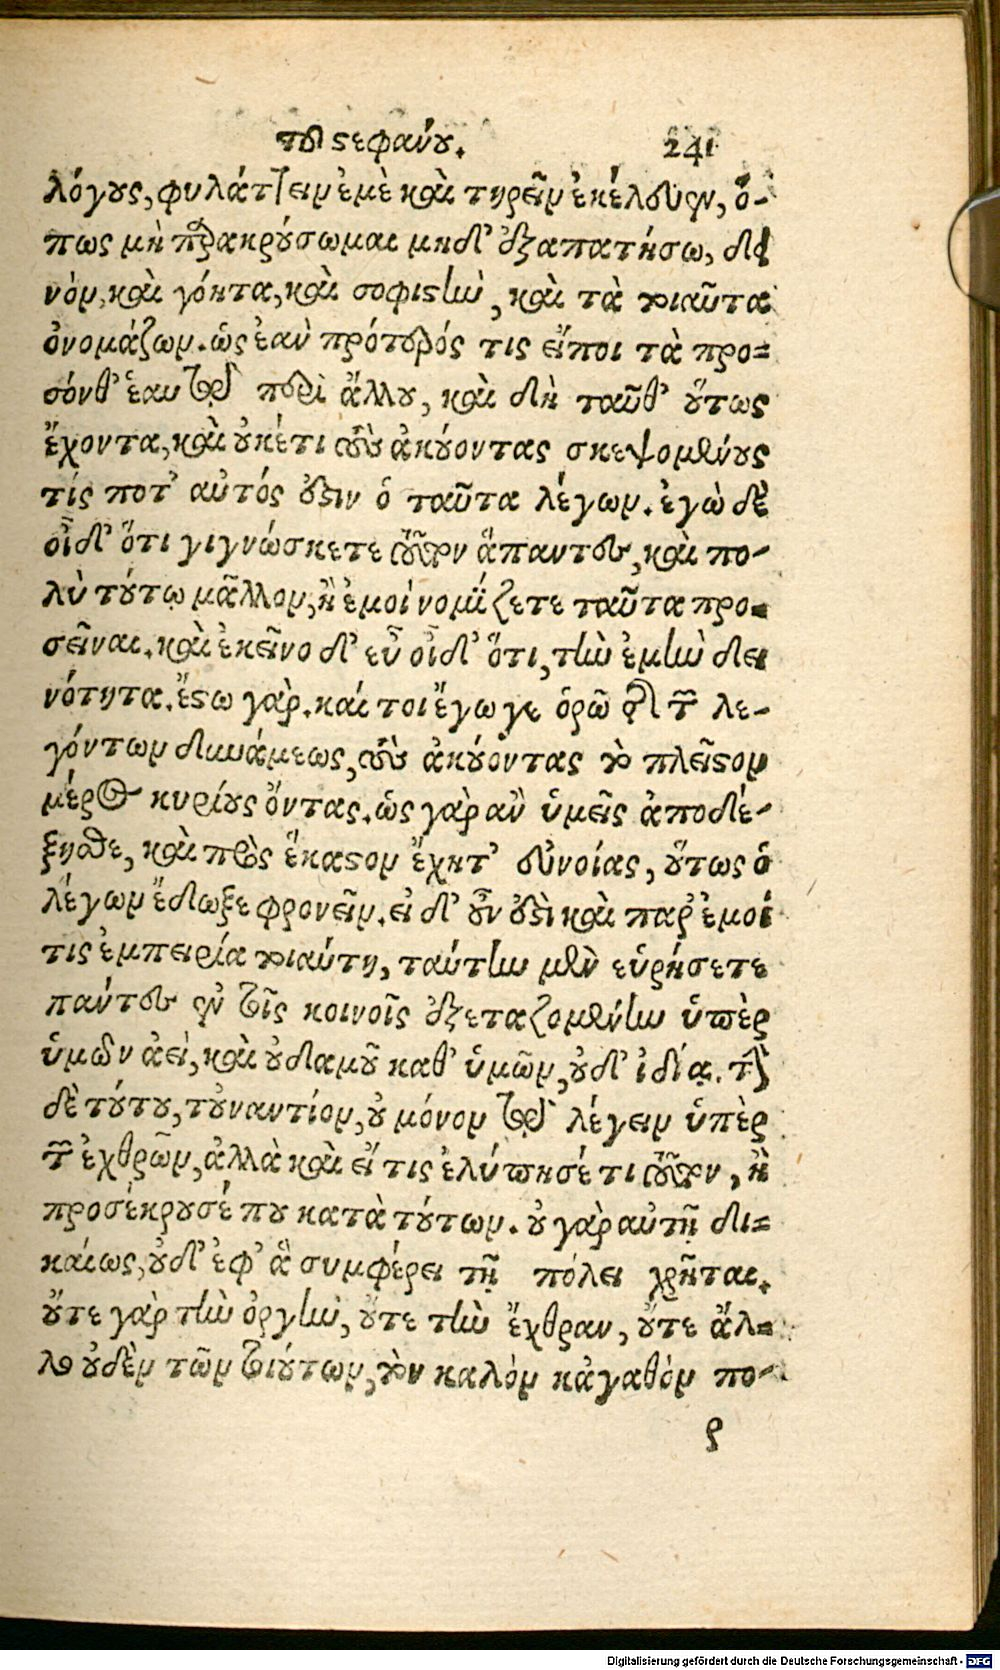 τοῦ στεφάνου. 241
λόγους, φυλάττειν ἐμὲ καὶ τηρεῖν ἐκέλευεν, ὅ-
πως μὴ παρακρούσωμαι μηδ' ἐξαπατήσω, δει
νὸν, καὶ γόητα, καὶ σοφιστὴν, καὶ τὰ τοιαῦτα
ὀνομάζων. ὡς ἐὰν πρότερός τις εἴποι τὰ προ-
σόνθ' ἑαυτῷ περὶ ἄλλου, καὶ δὴ ταῦθ' οὕτως
ἔχοντα, καὶ οὐκέτι τοὺς ἀκούοντας σκεψομένους
τίς ποτ' αὐτός ἐστιν ὁ ταῦτα λέγων. ἐγὼ δὲ
οἶδ' ὅτι γιγνώσκετε τοῦτον ἅπαντες, καὶ πο-
λὺ τούτῳ μᾶλλον, ἢ ἐμοί νομίζετε ταῦτα προ-
σεῖναι. καὶ ἐκεῖνο δ' εὖ οἶδ' ὅτι, τὴν ἐμὴν δει
νότητα. ἔστω γὰρ. καί τοι ἔγωγε ὁρῶ τῆς τῶν λε-
γόντων δυνάμεως, τοὺς ἀκούοντας τὸ πλεῖστον
μέρος κυρίους ὄντας. ὡς γὰρ ἂν ὑμεῖς ἀποδέ-
ξησθε, καὶ πρὸς ἕκαστον ἔχητ' εὐνοίας, οὕτως ὁ
λέγων ἔδωξε φρονεῖν. εἰ δ' οὖν ἐστὶ καὶ παρ' ἐμοί
τις ἐμπειρία τοιαύτη, ταύτην μὲν εὑρήσετε
πάντες ἐν τοῖς κοινοῖς ἐξεταζομένην ὑπὲρ
ὑμῶν ἀεὶ, καὶ οὐδαμοῦ καθ' ὑμῶν, οὐδ' ἰδίᾳ. τὴν
δὲ τούτου, τοὐναντίον, οὐ μόνον τῷ λέγειν ὑπὲρ
τῶν ἐχθρῶν, ἀλλὰ καὶ εἴ τις ἐλύπησέ τι τοῦτον, ἢ
προσέκρουσέ που κατὰ τούτων. οὐ γὰρ αὐτῇ δι-
καίως, οὐδ' ἐφ' ἃ συμφέρει τῇ πόλει χρῆται.
οὔτε γὰρ τὴν ὀργὴν, οὔτε τὴν ἔχθραν, οὔτε ἄλ-
λο οὐδὲν τῶν τοιούτων, τὸν καλὸν κἀγαθὸν πο-
ς
Digitalisierung gefördert durch die Deutsche Forschungsgemeinschaft - DFG